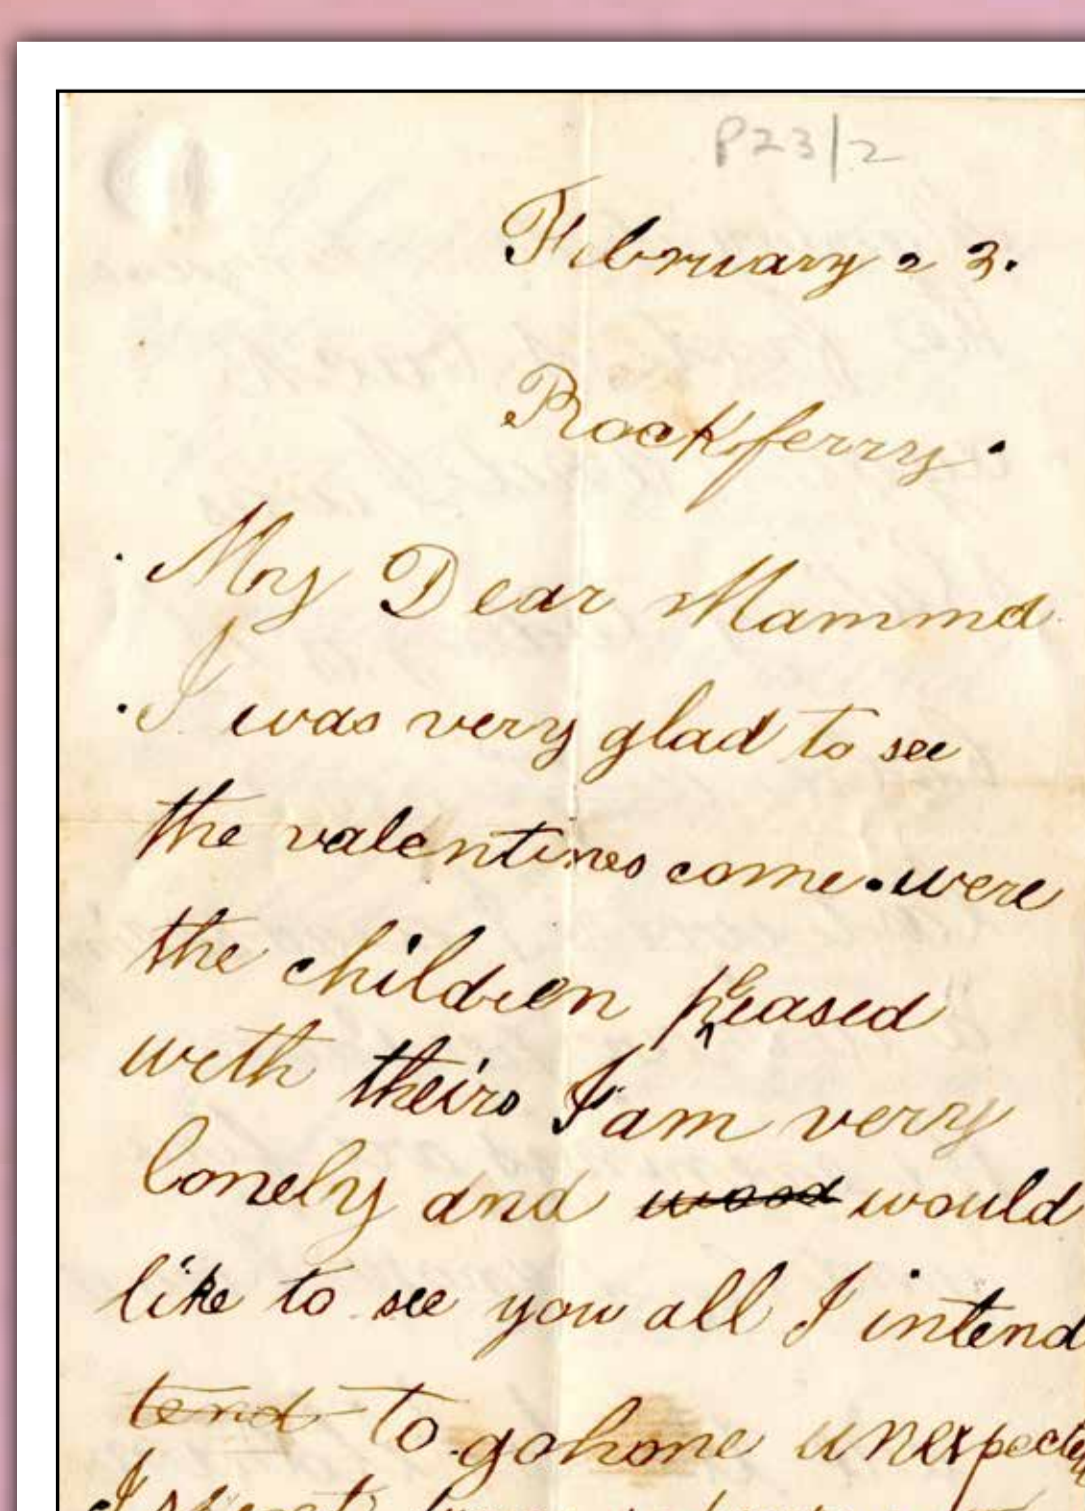 P23/2
February 23.
Rockferry.
My Dear Mamma
I was very glad to see
the valentines come. were
the children pleased
with theirs I am very
lonely and wood would
like to see you all I intend
tend to go home
I